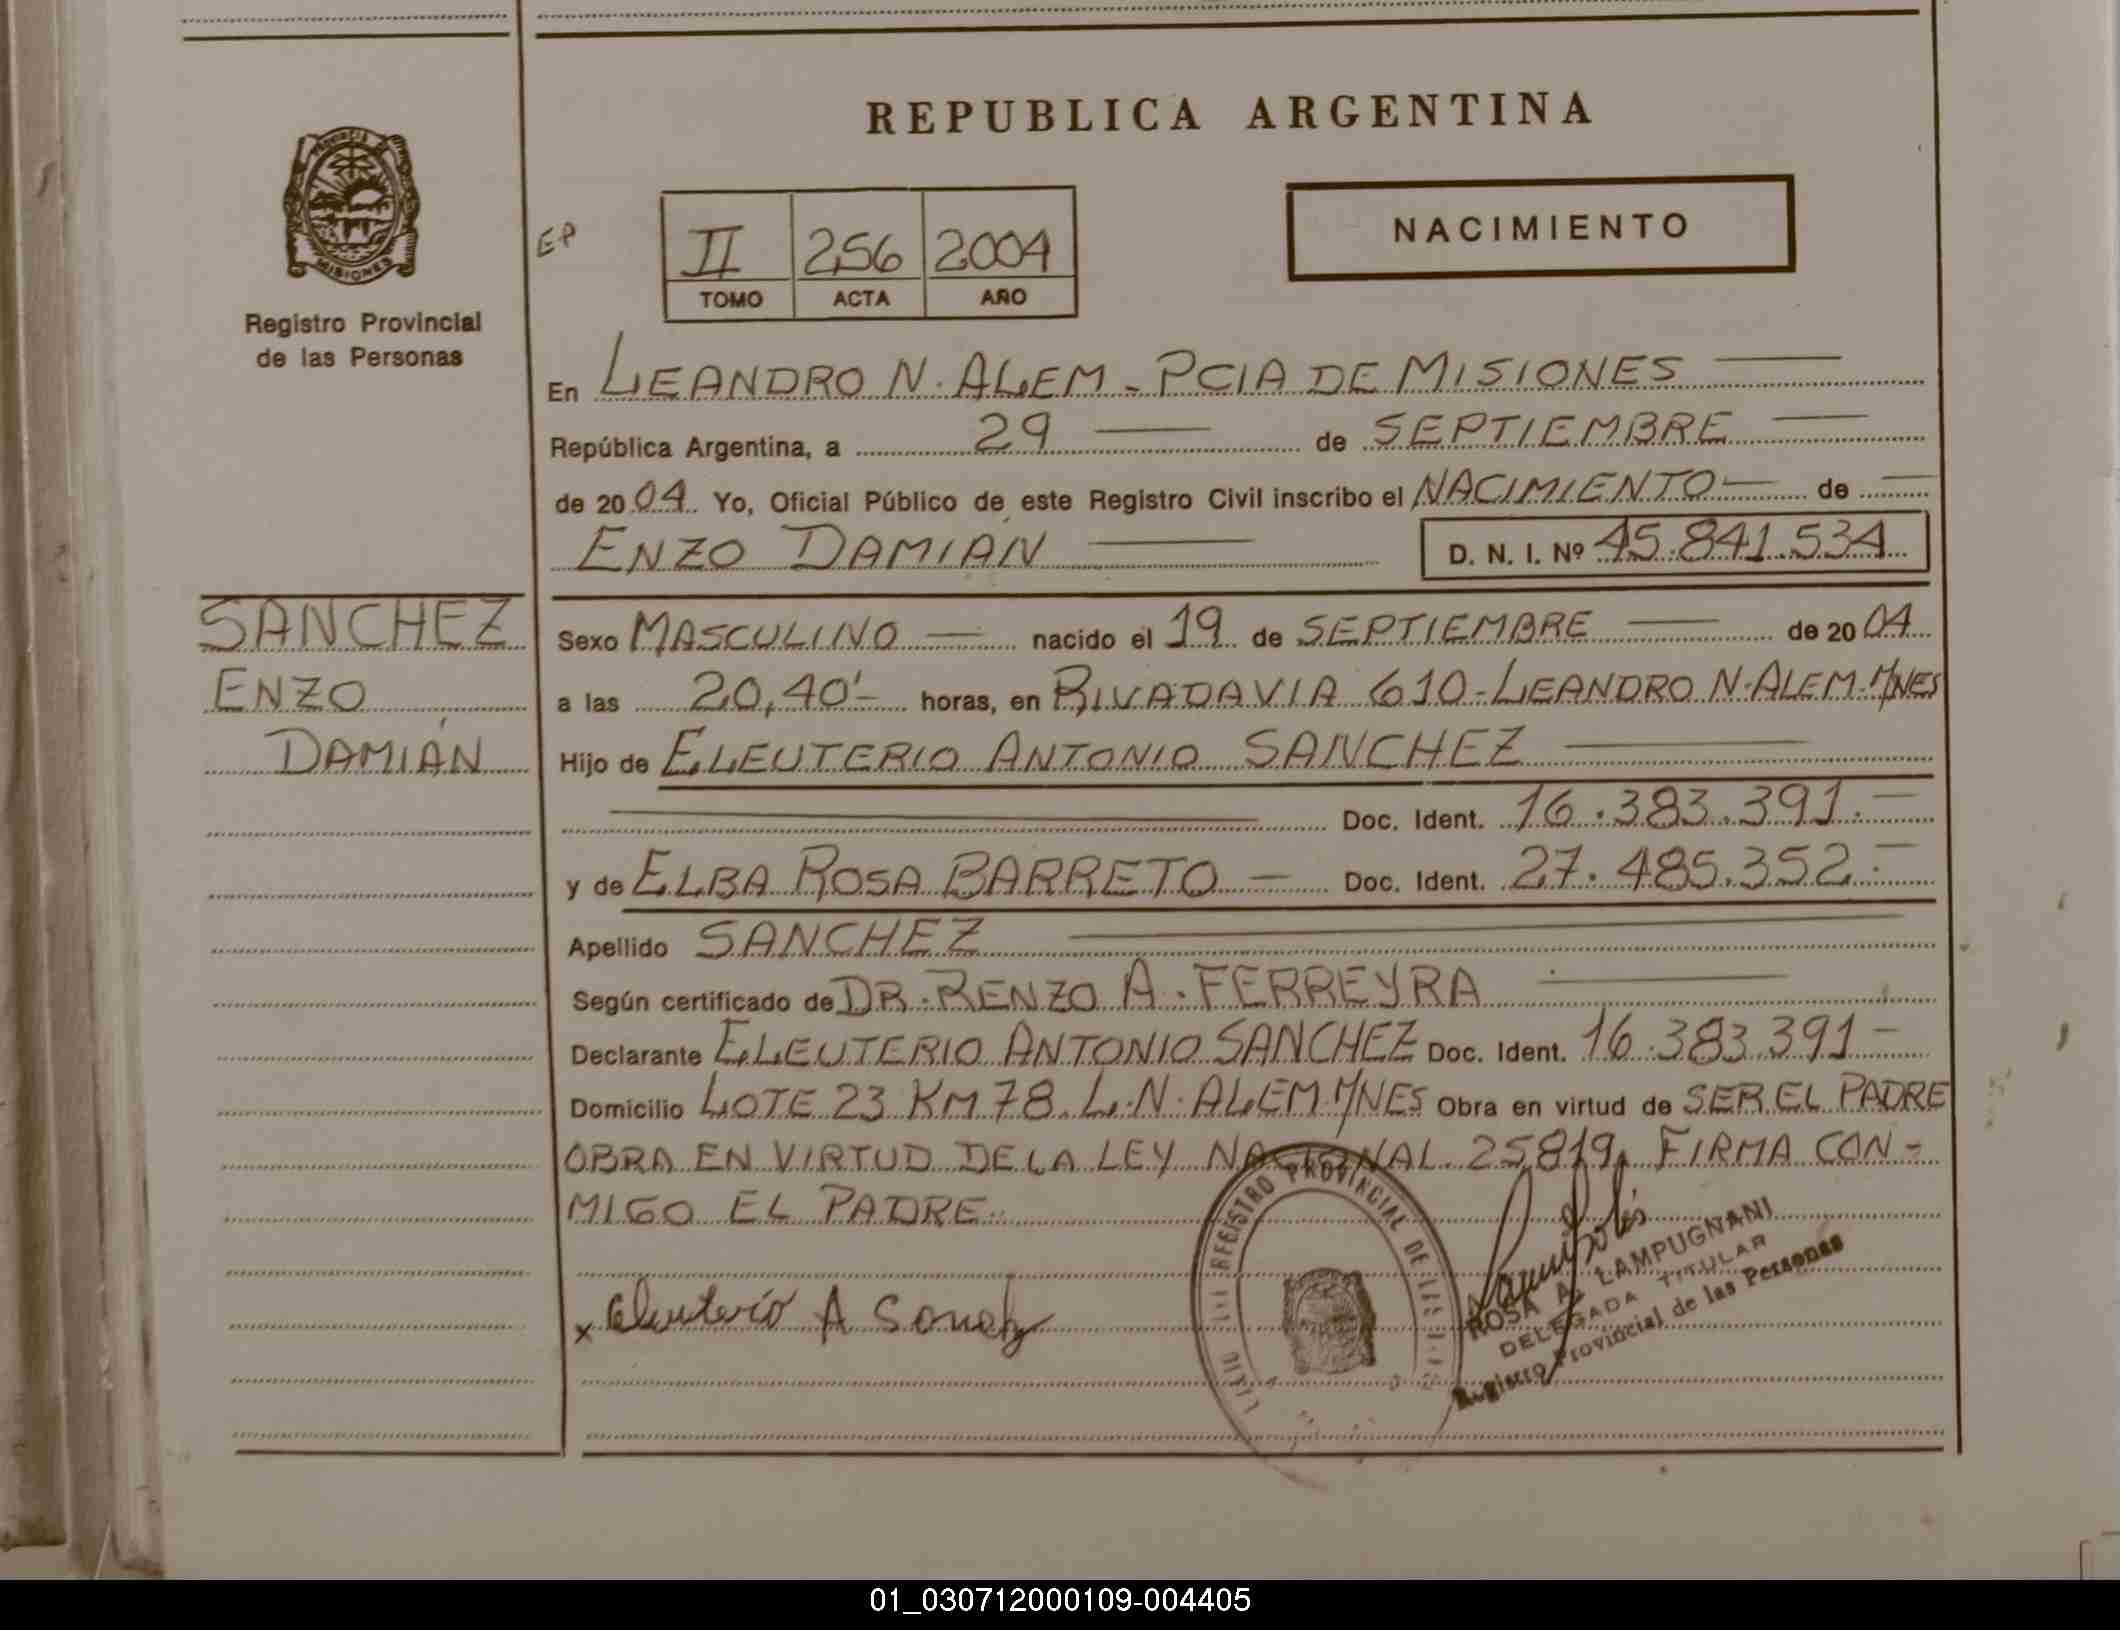 REPUBLICA ARGENTINA
PROVINCIA DE
MISIONES
Registro Provincial
de las Personas
EP
II 256 2004
TOMO ACTA AÑO
NACIMIENTO
En LEANDRO N. ALEM - PCIA DE MISIONES
República Argentina, a 29 de SEPTIEMBRE
de 2004 Yo, Oficial Público de este Registro Civil inscribo el NACIMIENTO de
ENZO DAMIÁN D. N. I. Nº 45.841.534
SANCHEZ
ENZO
DAMIÁN
Sexo MASCULINO nacido el 19 de SEPTIEMBRE de 2004
a las 20,40'- horas, en RIVADAVIA 610 - LEANDRO N. ALEM - M/NES
Hijo de ELEUTERIO ANTONIO SANCHEZ
Doc. Ident. 16.383.391.-
y de ELBA ROSA BARRETO - Doc. Ident. 27.485.352.-
Apellido SANCHEZ
Según certificado de DR. RENZO A. FERREYRA
Declarante ELEUTERIO ANTONIO SANCHEZ Doc. Ident. 16.383.391-
Domicilio LOTE 23 KM 78 L.N. ALEM M/NES Obra en virtud de SER EL PADRE
OBRA EN VIRTUD DE LA LEY NACIONAL 25819, FIRMA CON-
MIGO EL PADRE
x Eleuterio A Sanchez
REGISTRO PROVINCIAL DE LAS
ROSA A. LAMPUGNANI
DELEGADA TITULAR
Registro Provincial de las Personas
01_030712000109-004405